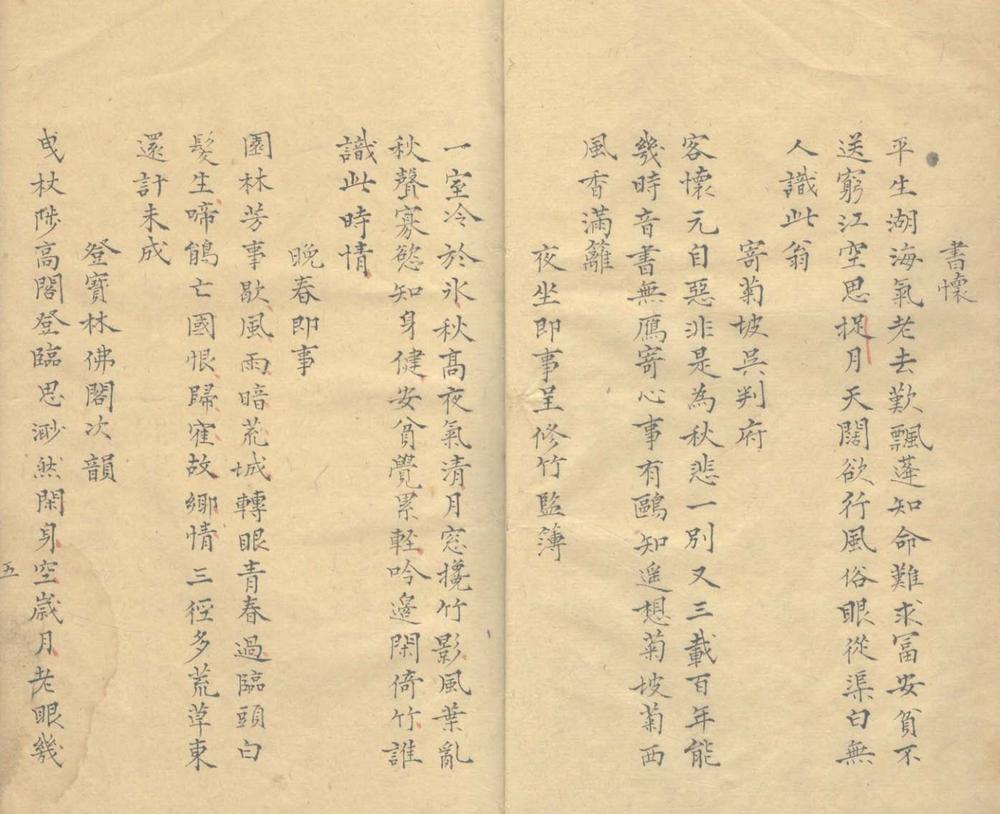 書懷
平生湖海氣老去歎飄蓬知命難求冨安貧不
送窮江空思捉月天闊欲行風俗眼從渠白無
人識此翁
寄菊坡吳判府
客懷元自惡非是為秋悲一別又三載百年能
幾時音書無鴈寄心事有鷗知遥想菊坡菊西
風香滿籬
夜坐即事呈修竹監簿
一室冷於氷秋髙夜氣清月窓攙竹影風葉亂
秋聲寡慾知身健安貧覺累輕吟邊閑倚竹誰
識此時情
晚春即事
園林芳事歇風雨暗荒城轉眼青春過臨頭白
髮生啼鵑亡國恨歸寉故鄉情三徑多荒草東
還計未成
登寶林佛閣次韻
曵杖陟高閣登臨思渺然閑身空歲月老眼幾
五